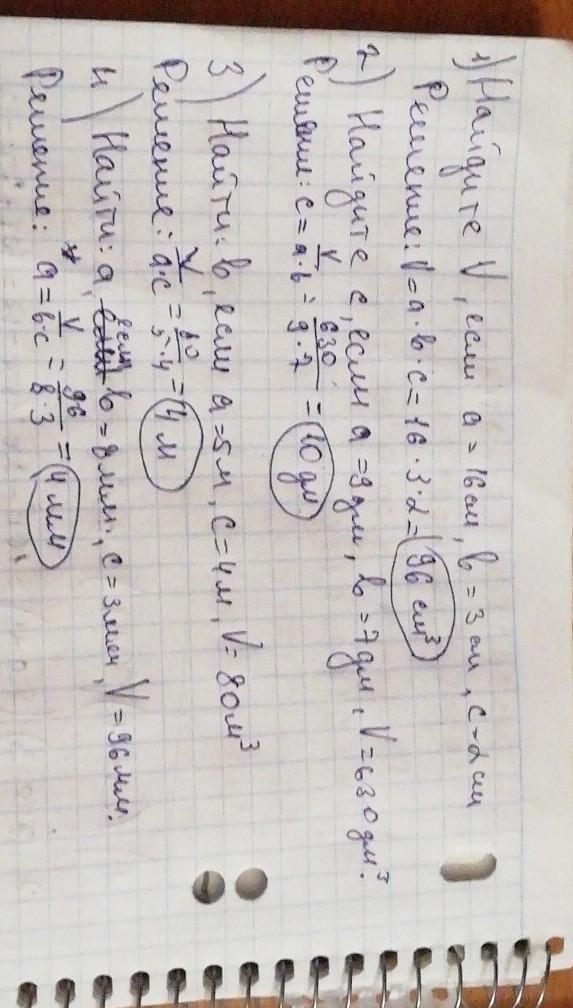 1) Найдите V, если a = 16 см, b = 3 см, c = 2 см
Решение: V = a · b · c = 16 · 3 · 2 = 96 см³
2) Найдите c, если a = 9 дм, b = 7 дм, V = 630 дм³.
Решение: c = V/a·b = 630/9·7 = 10 дм
3) Найти: b, если a = 5 м, c = 4 м, V = 80 м³
Решение: V/a·c = 80/5·4 = 4 м
4) Найти: a, если b = 8 мм, c = 3 мм, V = 96 мм.
Решение: a = V/b·c = 96/8·3 = 4 мм